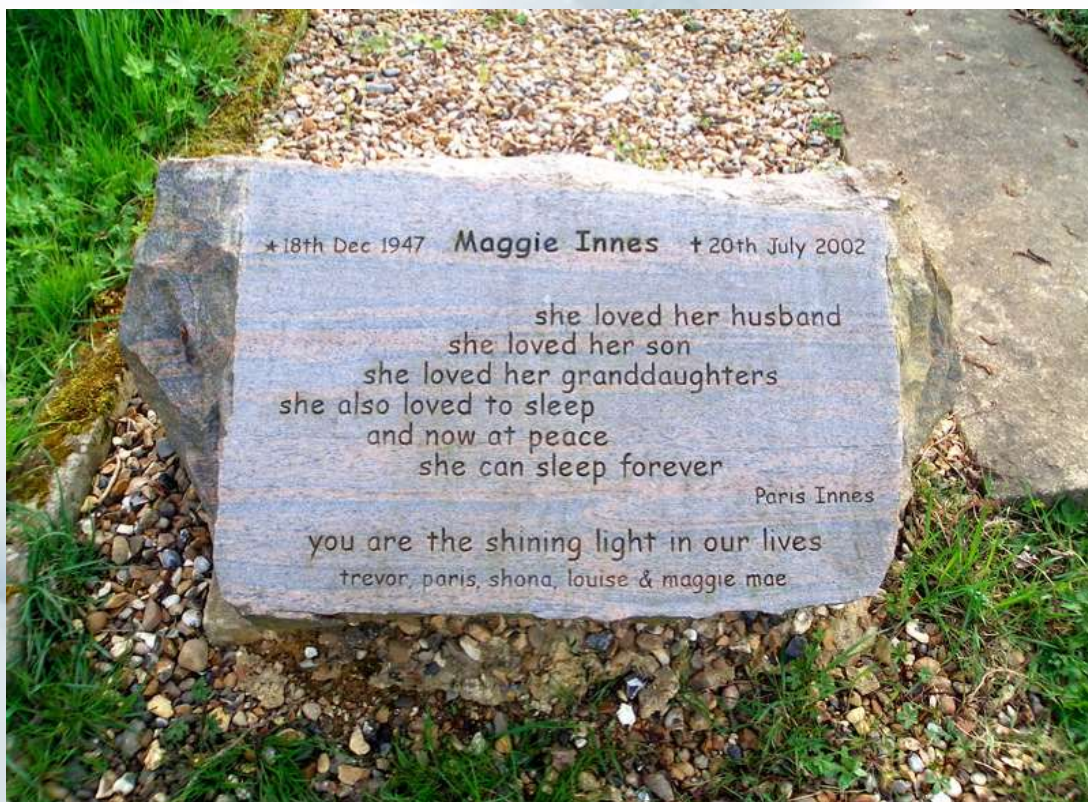 ★18th Dec 1947 Maggie Innes ✝20th July 2002
she loved her husband
she loved her son
she loved her granddaughters
she also loved to sleep
and now at peace
she can sleep forever
Paris Innes
you are the shining light in our lives
trevor, paris, shona, louise & maggie mae